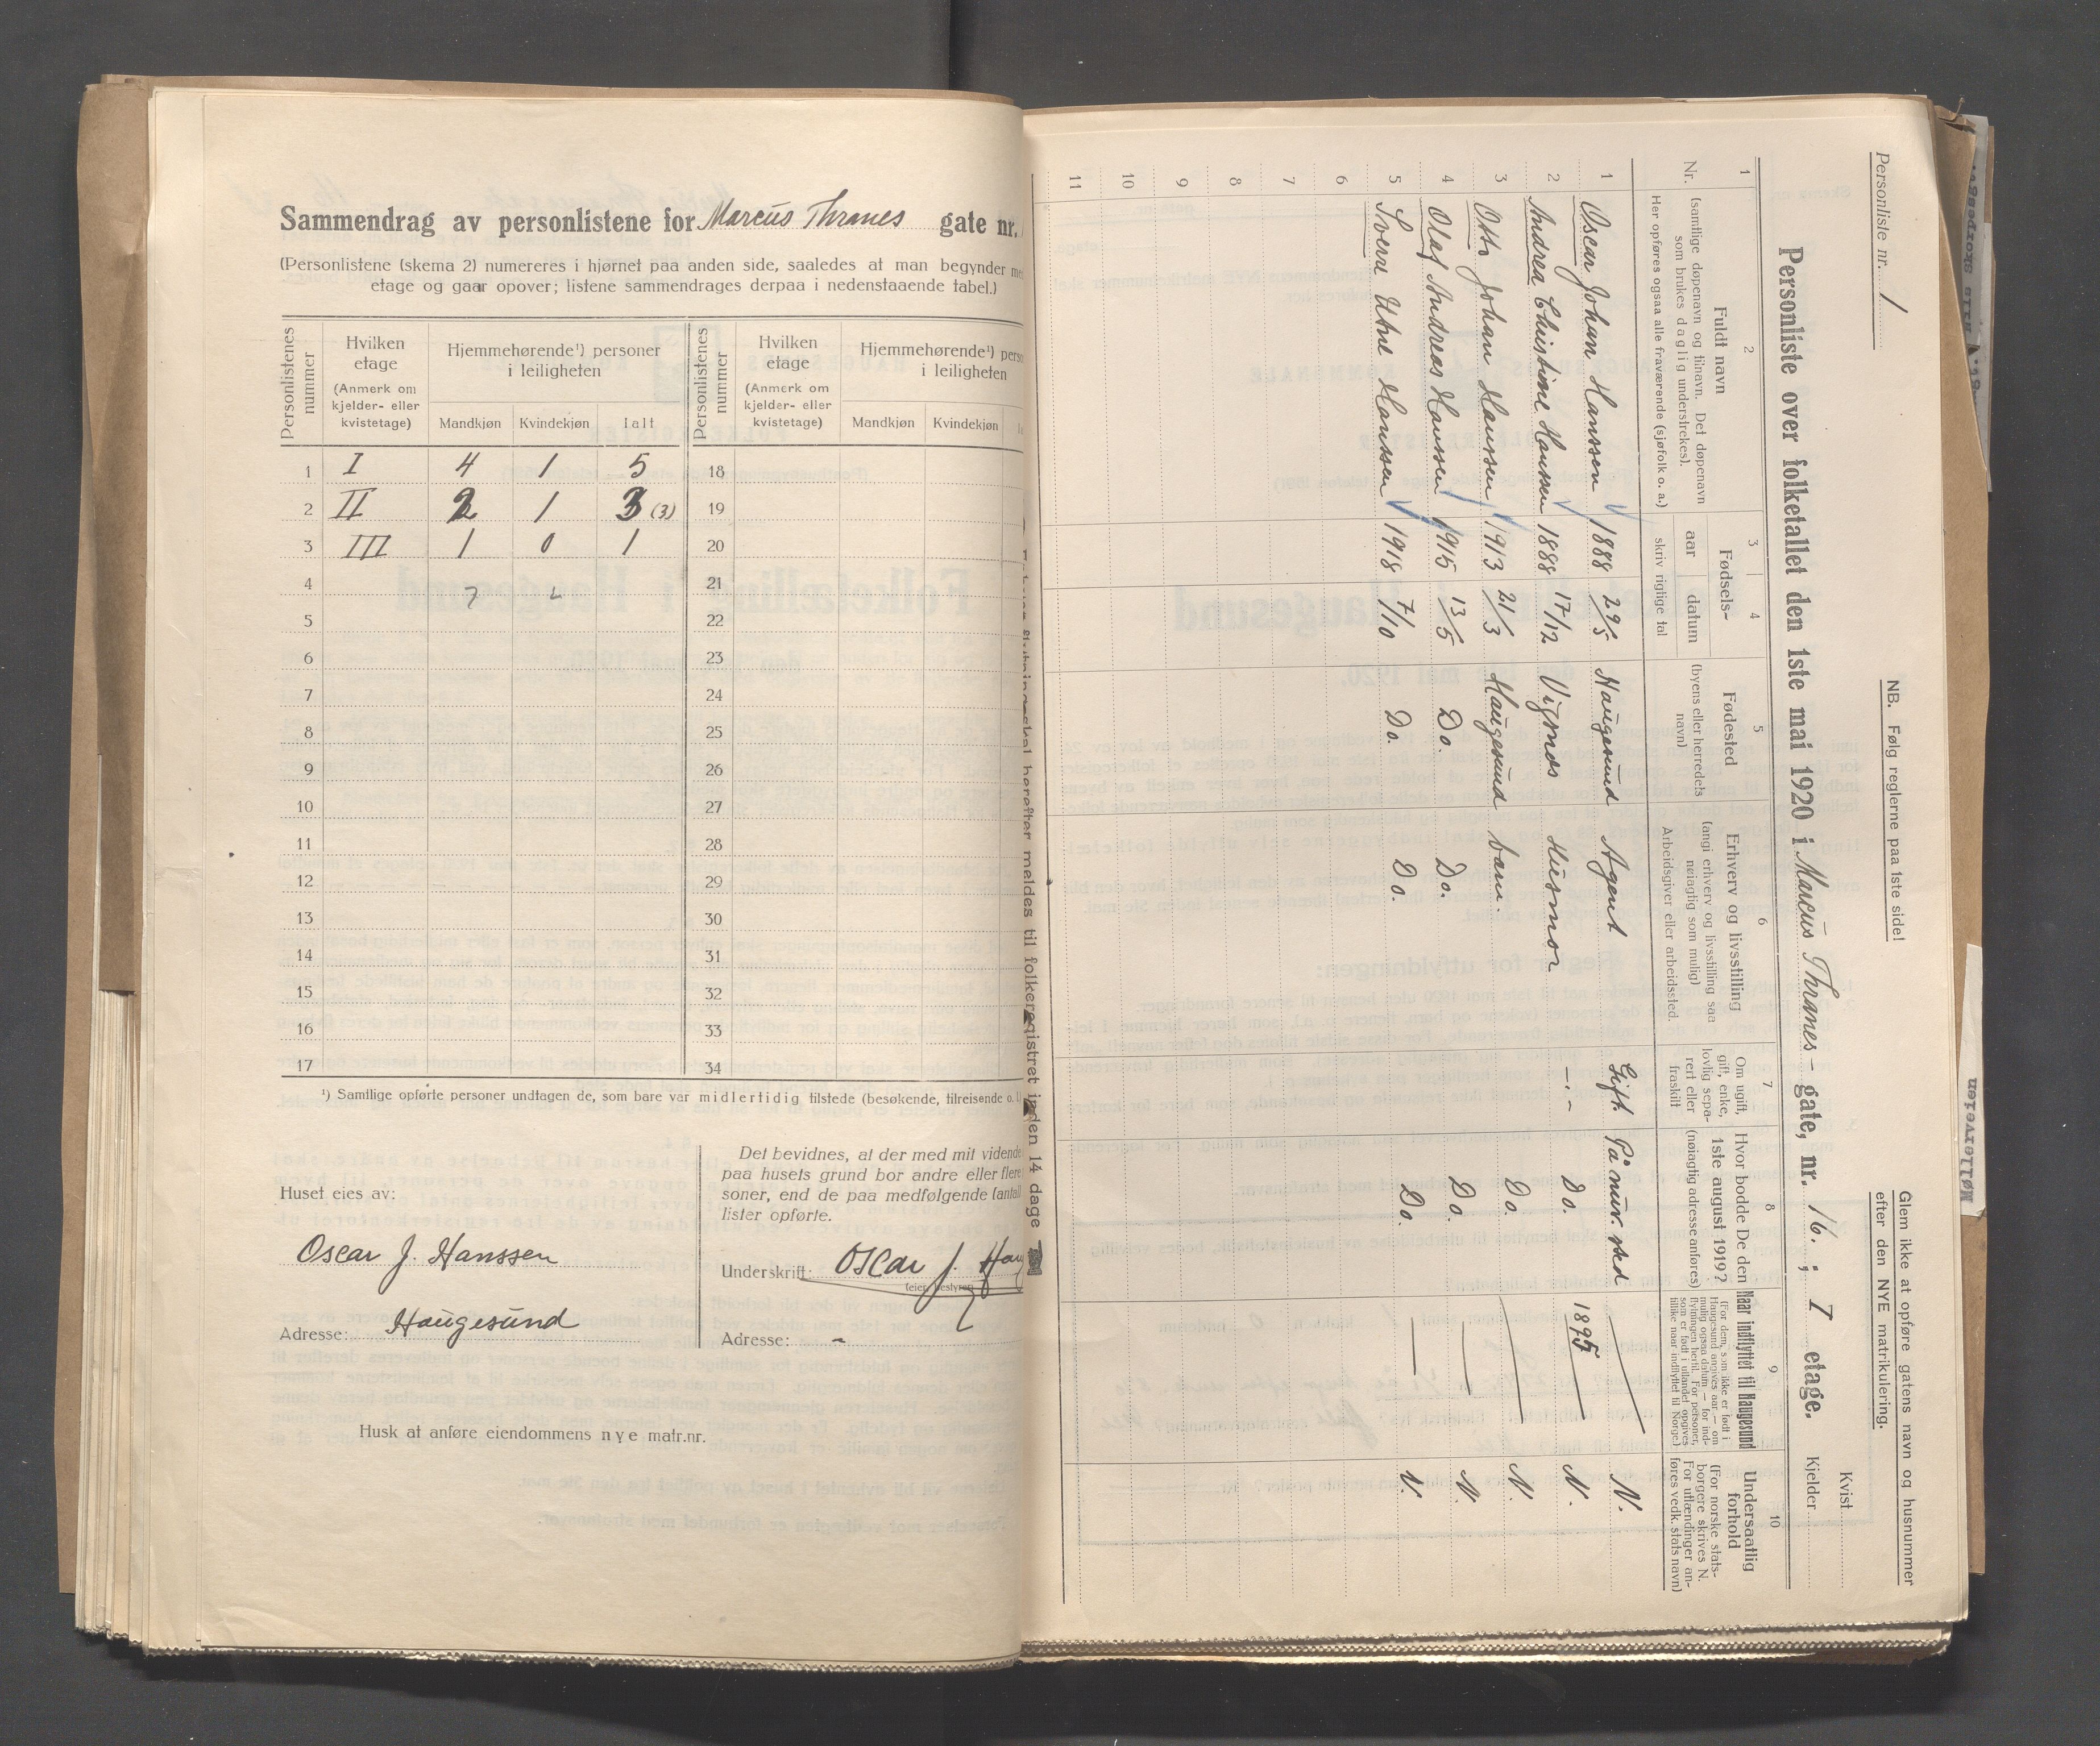 Sammendrag av personlistene for Marcus Thranes gate nr.
(Personlistene (skema 2) numereres i hjørnet paa anden side, saaledes at man begynder
etage og gaar opover; listene sammendrages derpaa i nedenstaaende tabel.)
Personlistenes nummer
Hvilken etage (Anmerk om kjelder- eller kvistetage)
Hjemmehørende¹) personer i leiligheten
Mandkjøn Kvindekjøn Ialt
Personlistenes nummer
Hvilken etage (Anmerk om kjelder- eller kvistetage)
Hjemmehørende¹) i leiligheten
Mandkjøn Kvindekjøn
1 I 4 1 5 18
2 II 2 1 3 (3) 19
3 III 1 0 1 20
4 7 2 21
5 22
6 23
7 24
8 25
9 26
10 27
11 28
12 29
13 30
14 31
15 32
16 33
17 34
¹) Samtlige opførte personer undtagen de, som bare var midlertidig tilstede (besøkende, tilreisende o. l.)
Huset eies av:
Oscar J. Hanssen
Adresse: Haugesund
Det bevidnes, at der med mit vidende
paa husets grund bor andre eller flere
soner, end de paa medfølgende (antall
lister opførte.
Underskrift: Oscar J.
Adresse: -
Husk at anføre eiendommens nye matr.nr.
herefter meldes til folkeregistret inden 14 dage
Personliste nr. 1
NB. Følg reglerne paa 1ste side!
Glem ikke at opføre gatens navn og husnummer
efter den NYE matrikulering.
Personliste over folketallet den 1ste mai 1920 i Marcus Thranes- gate, nr. 16. ; I etage.
Kvist
Kjelder
1 Nr.
2 Fuldt navn (samtlige døpenavn og tilnavn. Det døpenavn som brukes daglig understrekes). Her opføres ogsaa alle fraværende (sjøfolk o. a.)
Fødsels-
3 aar 4 datum
skriv rigtige tal
5 Fødested (byens eller herredets navn)
6 Erhverv og livsstilling (angi erhverv og livsstilling saa nøiagtig som mulig) Arbeidsgiver eller arbeidssted.
7 Om ugift, gift, enke, lovlig separert eller fraskilt
8 Hvor bodde De den 1ste august 1919? (nøiagtig adresse anføres)
9 Naar indflyttet til Haugesund (For dem, som ikke er født i Haugesund angives aar — om mulig ogsaa datum — for indflytningen hertil. For personer, som er født i utlandet opgives tillike naar indflyttet til Norge.)
10 Undersaatlig forhold (For norske statsborgere skrives N. For utlændinger anføres vedk. stats navn)
1 Oscar Johan Hanssen 1888 29/5 Haugesund Agent Gift. På nuv. sted — N.
2 Andrea Christine Hanssen 1888 17/12 Vigsnæs Husmor -.- Do. 1895 N.
3 Otto Johan Hanssen 1913 21/3 Haugesund barn. Do. — N.
4 Olaf Andreas Hanssen 1915 13/5 Do. Do. Do. — N.
5 Sverre Uhre Hanssen 1918 7/10 Do. Do. Do. — N.
6
7
8
9
10
11
Møllerveien